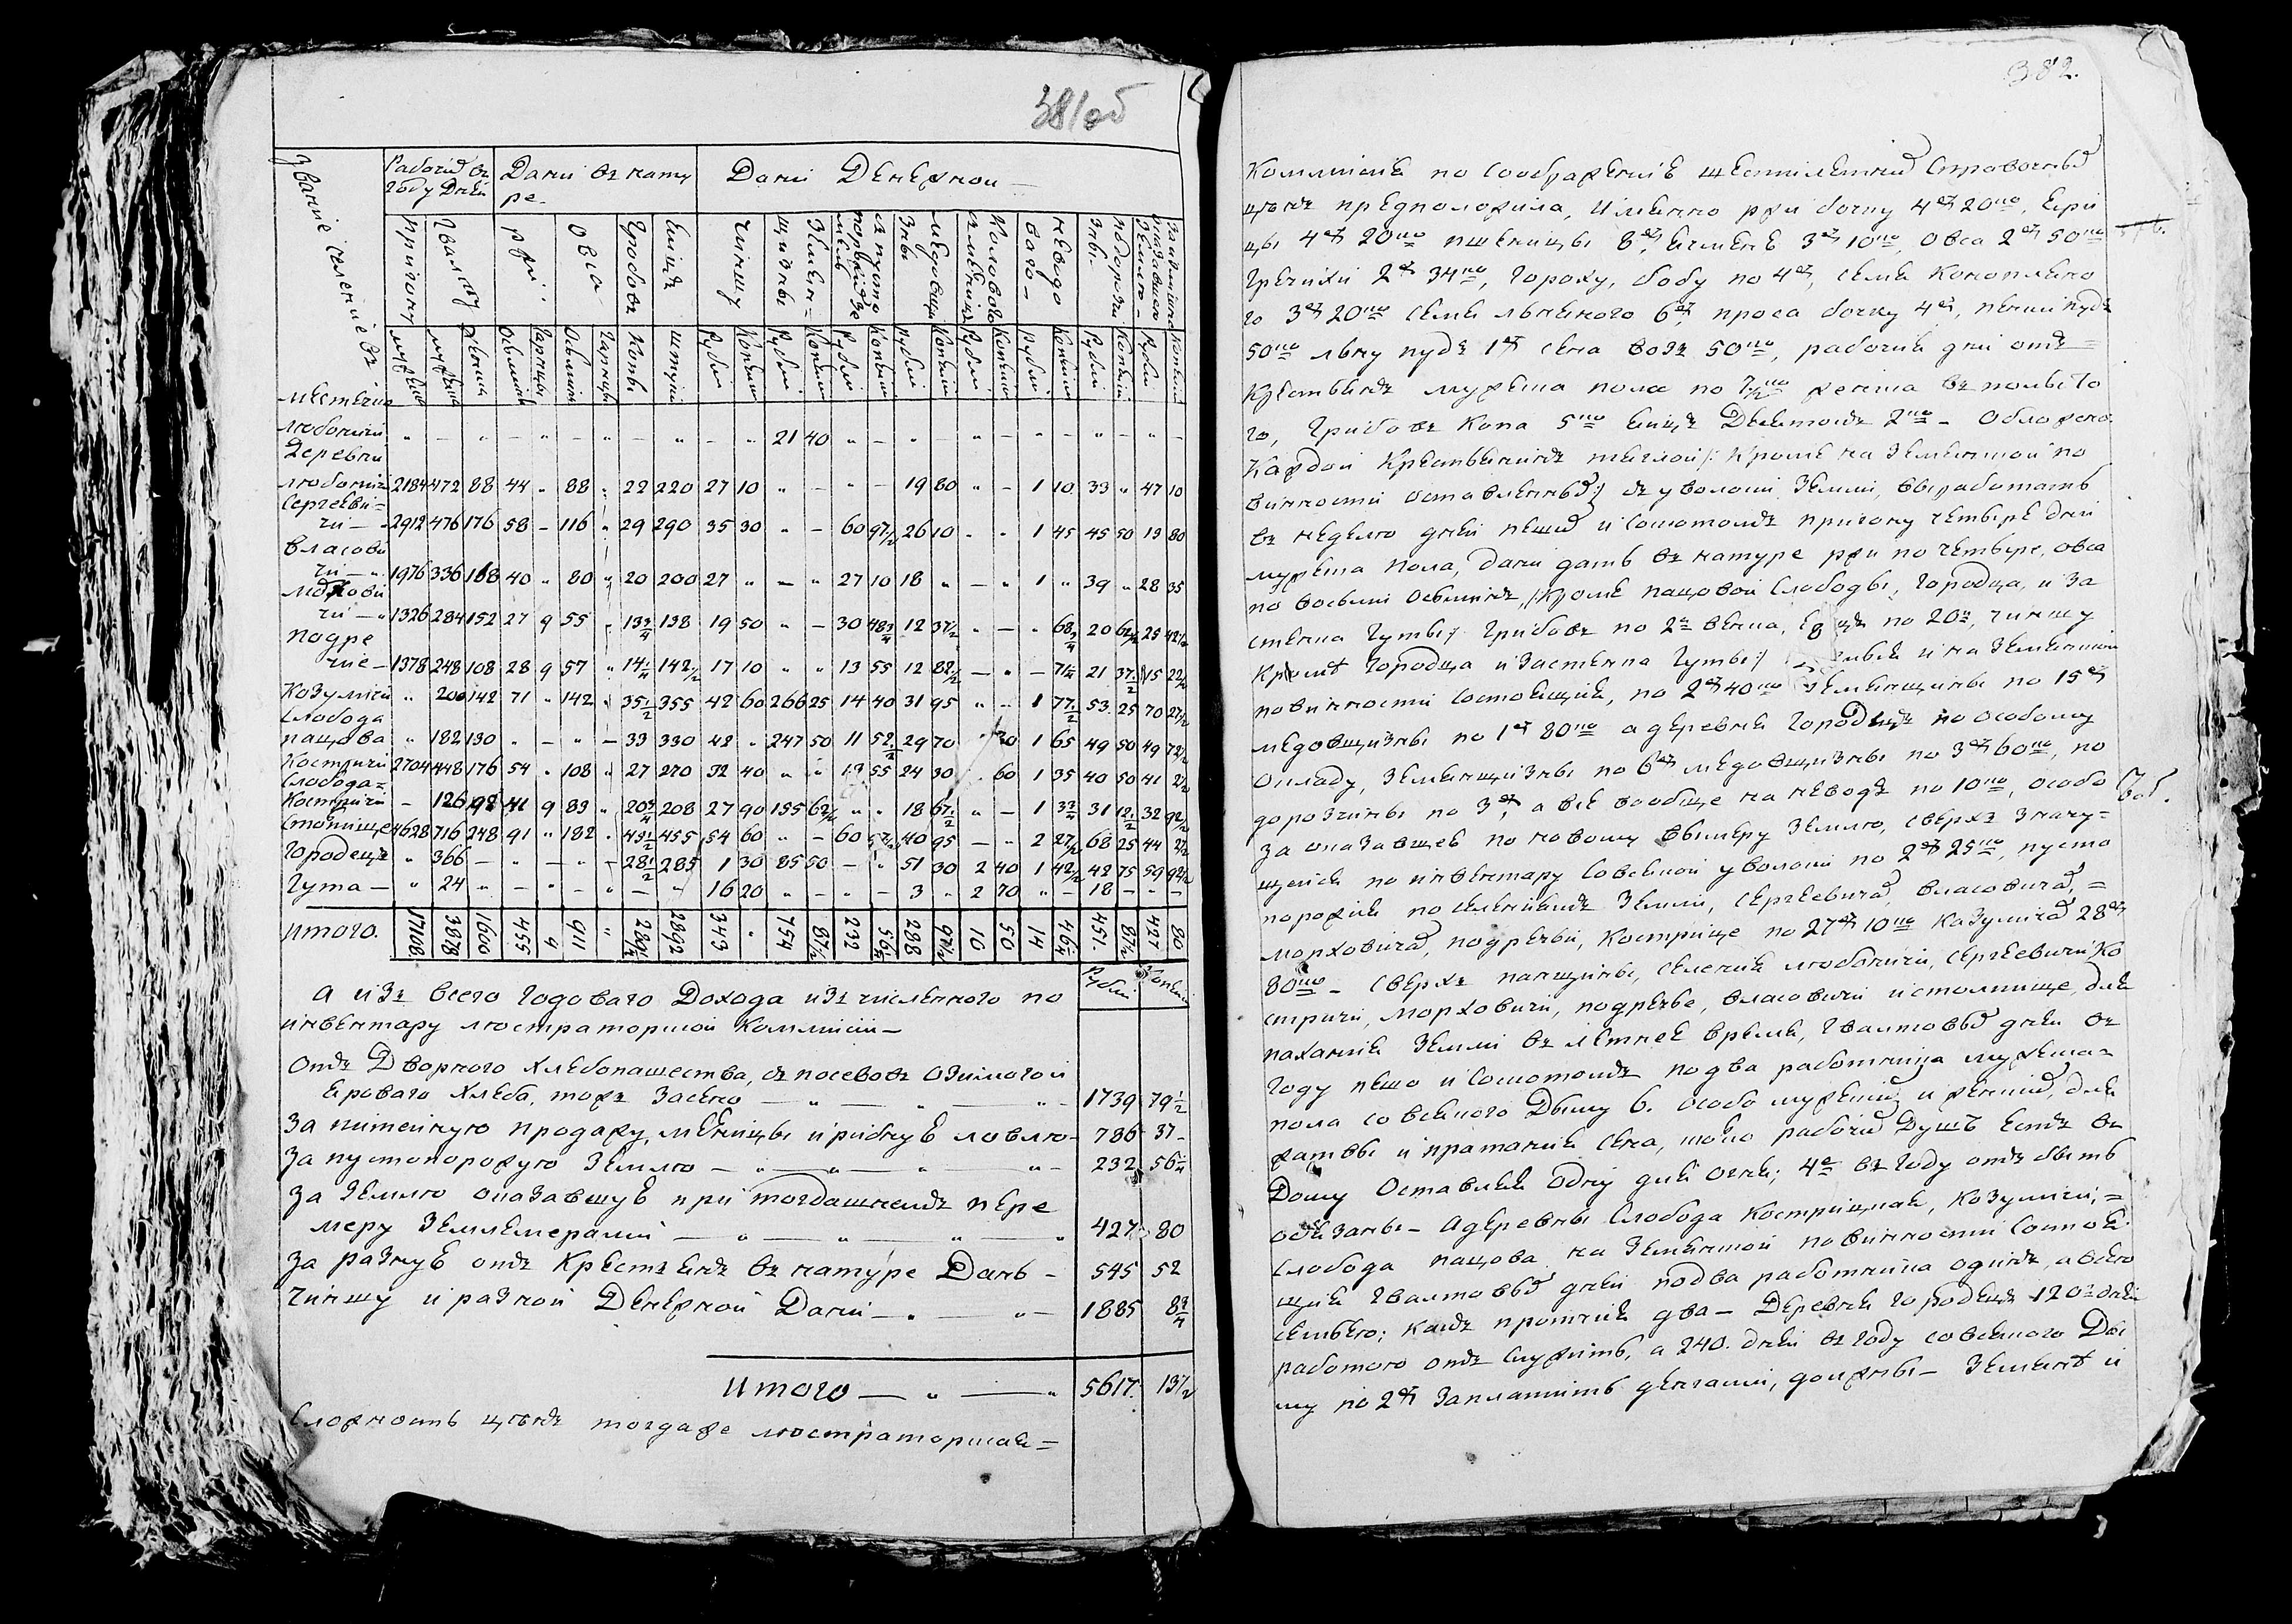 381об
Званіе селеніевъ
Рабочихъ въ году дней
Дани въ натуре
Дани Денежной
Пригону
Гвалту
ржи
овса
Грибовъ
Еицъ
чиншу
Медовщизны
Неводо
мужеска
мужеска
женска
Осмины
Гарнцы
Осмины
Гарнцы
Копы
штуки
Рубли
Копейки
Рубли
Копейки
Рубли
Копейки
Рубли
Копейки
местечко
любоничи " — " — " — " — " — " 21 40 " — " — " — " — " — " —
Деревни
любоничи 2184 472 88 44 " 88 " 22 220 27 10 " — " — 19 80 " — 1 10 33 " 47 10
Сергееви=
чи — 2912 476 176 58 — 116 " 29 290 35 30 " — 60 97½ 26 10 " " 1 45 45 50 19 80
Власови
чи — 1976 336 168 40 " 80 " 20 200 27 " — " 27 10 18 " — " 1 " 39 " 28 35
Морхови
чи — 1326 284 152 27 9 55 " 13¾ 138 19 50 " — 30 48¾ 12 37½ " — " 68¾ 20 62½ 25 42½
Подре
чіе — 1378 248 108 28 9 57 " 14¼ 142½ 17 10 " " 13 55 12 82½ — " — 71¼ 21 37½ 15 22½
Козуличи " 200 142 71 " 142 " 35½ 355 42 60 266 25 14 40 31 95 " — 1 77½ 53 25 70 27½
Слобода
пацова " 182 130 " — " — 33 330 42 " 247 50 11 52½ 29 70 " 30 1 65 49 50 49 72½
Костричи 2704 448 176 54 " 108 " 27 270 32 40 " " 13 55 24 30 " 60 1 35 40 50 41 2½
Слобода=
Костричи — 126 92 41 9 83 " 20¾ 208 27 90 155 62½ " " 18 67½ " — 1 3¾ 31 12½ 32 92½
Столпище 4628 716 248 91 " 182 " 45½ 455 54 60 " — 60 57½ 40 95 — " 2 27½ 68 25 44 2½
Городецъ " 366 — " — " — 28½ 285 1 30 85 50 — " 51 30 2 40 1 42½ 42 75 59 92½
Гута — " 24 " — " — " — " 16 20 " — " — 3 " 2 70 " — 18 — " —
Итого. 17108 3878 1600 455 9 911 " 289¼ 2892 343 " 754 87½ 232 56¼ 288 97½ 10 50 14 46¼ 451 87½ 427 80
Рубли Копейки
А изъ всего Годоваго Дохода изъчисленного по
инвентару люстраторской Коммисіи —
Отъ Дворного хлебопашества, съ посевовъ озимогои
ероваго хлеба, тожъ засено — " — " — " — 1739 79½
За питейную продажу, мельницы ирибную ловлю — 786 37 —
За пустопорожую землю — " — " — " — 232 56¼
За землю оказавшую при тогдашнемъ пере
меру землемерами — " — " — " — " 427 80
За разную отъ Крестьянъ въ натуре Дань — 545 52
Чиншу и разной Денежной Дани — " — 1885 8¾
Итого — " — " 5617 13½
Сложность ценъ тогдаже люстраторская=
382.
Коммисія по соображеніе шестилетнихъ справочныхъ
ценъ предположила, именно ржи бочку 4 20, ери
цы 4 20 пшеницы 8, ечмене 3 10, овса 2 50
Гречихи 2 34, Гороху, бобу по 4, семе Конопляно
го 3 20 семе льняного 6, проса бочку 4, пенки пудъ
50 льну пудъ 1 сена возъ 50, рабочие дни отъ=
Крестьянъ мужеска пола по 7½ женска въ полы то
го, Грибовъ Копа 5 Еицъ Десетокъ 2 — Обложено
Каждой Крестьянинъ тяглой /: Кроме на земянской по
винности оставленныхъ :/ съ уволоки земли, выработать
въ неделю дней пешихъ и сохотомъ пригону четыре дни
мужеска пола, дани дать въ натуре ржи по четыре, овса
по восьми осьминъ, /: Кроме пацовой Слободы, Городца, и за
стенка Гуты :/ Грибовъ по 2 венка, Еицъ по 20, чиншу
Кроме Городца и застенка Гуты :/ и на земянской
повинности состоящихъ, по 2 40 земянщизны по 15
медовщизны по 1 80 а деревня Городецъ по особому
окладу, земянщизны по 6 медовщизны по 3 60, по
дорозчизны по 3, а все вообще на неводъ по 10, особо
за оказавшею по новому вымеру землю, сверхъ значу=
щейся по инвентару совсякой уволоки по 2 25, пусто
порожніе по селеніямъ земли, Сергеевичахъ, Власовичахъ,=
Морховичахъ, подречьи, Кострище по 27 10 Казуличахъ 28
80 — сверхъ панщины, селеніе любоничи, сергеевичи Ко
стричи, Морховичи, подречье, власовичи и столпище, для
паханія земли въ летнее время, Гвалтовыхъ дней въ
году пешо и сохотомъ по два работника мужеска=
пола со всякого Дыму 6. особо мужеской и женской, для
жатвы и пратанія сена, толко рабочихъ душъ естъ въ
Дому Оставляя одну для Огня; 4 въ Году отъбыть
обязаны — Адеревны Слобода Костричкая, козуличи,=
Слобода пацова на земянской повинности Состоя
щія Гвалтовыхъ дней подва работника одинъ, а всего
семьею; какъ протчія два — Деревня Городецъ 120 дней
работого отъслужить, а 240. дней въ Году совсякого Ды
му по 2 заплатить деньгами, должны — Земяне и